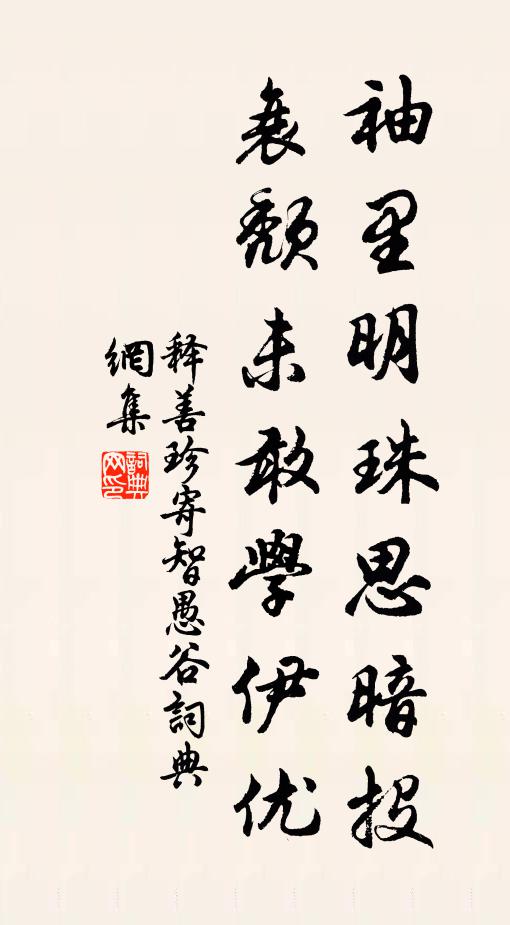 袖里明珠思暗投
衰颓未敢學伊优
释善珍寄智愚谷詞典
網集
詞典
网印